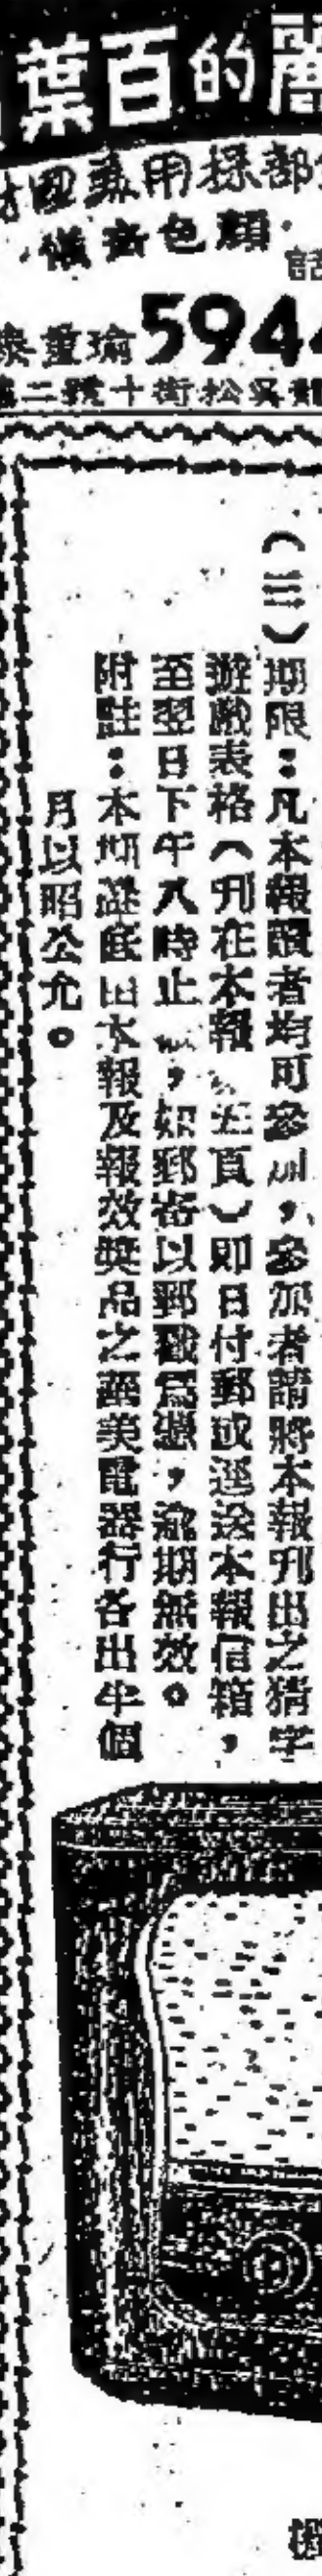 葉百的麗
用採部
備齊色顏
話
瑜重泰5944
號二十街松吳
（三）期限：凡本報讀者均可參加，參加者請將本報刊出之猜字
遊戲表格（刊在本報 五頁）即日付郵或逕送本報信箱，
至翌日下午八時止 ，如郵寄以郵戳爲憑，逾期無效。
附註：本期謎底由本報及報效獎品之 美電器行各出半個
月以昭公允。